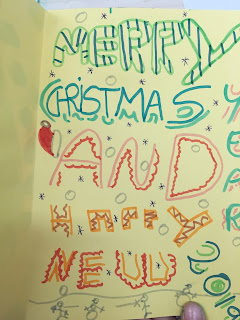 MERRY
CHRISTMAS
AND
HAPPY
NEW
YEAR
2019